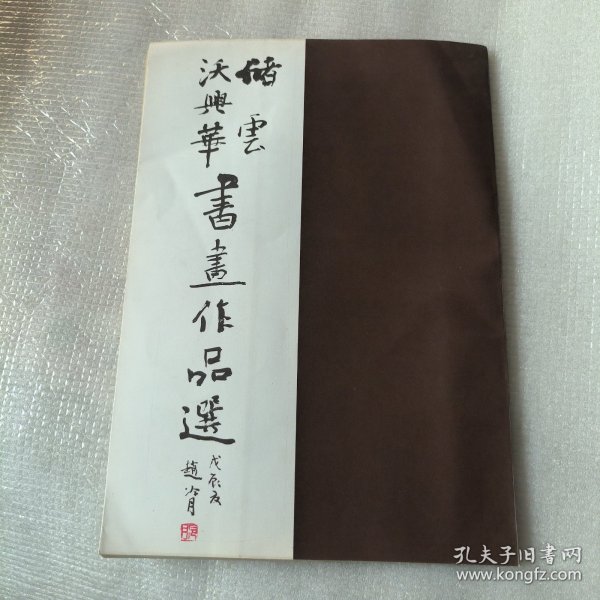 儲雲
沃興華
書畫作品選
戊辰友
趙冷月
孔夫子旧书网
www.kongfz.com